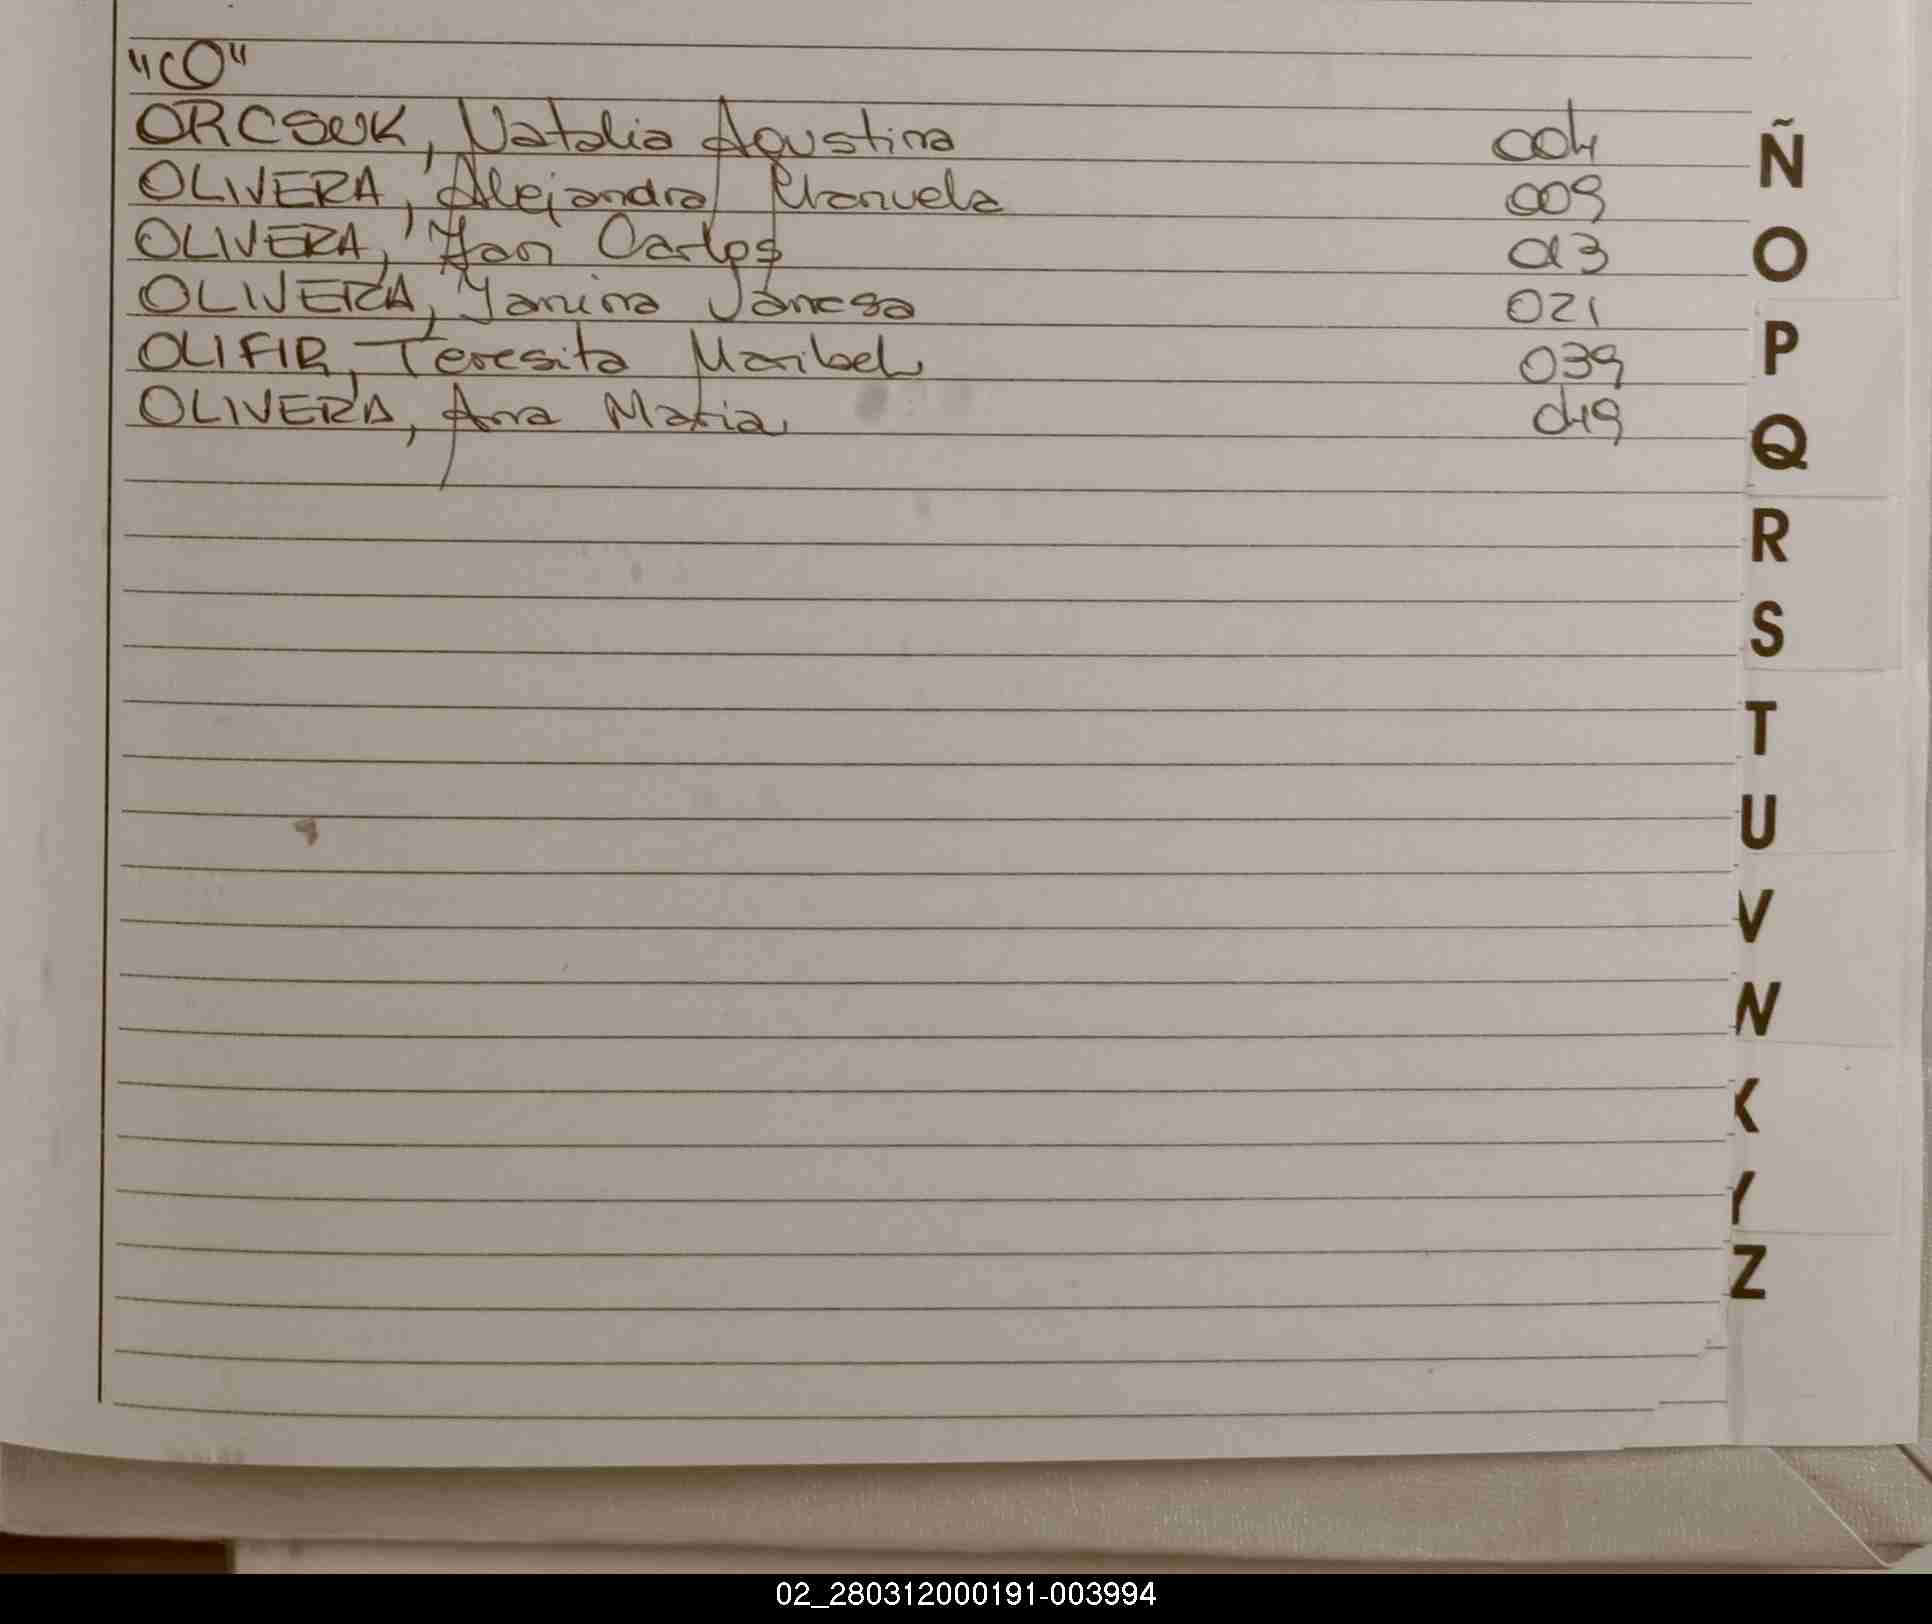 "O"
ORCSUK, Natalia Agustina 004
OLIVERA, Alejandra Manuela 009
OLIVERA, Juan Carlos 013
OLIVERA, Yanina Vanesa 021
OLIFIR, Teresita Maribel 039
OLIVERA, Ana Maria 049
Ñ
O
P
Q
R
S
T
U
V
X
Y
Z
02_280312000191-003994